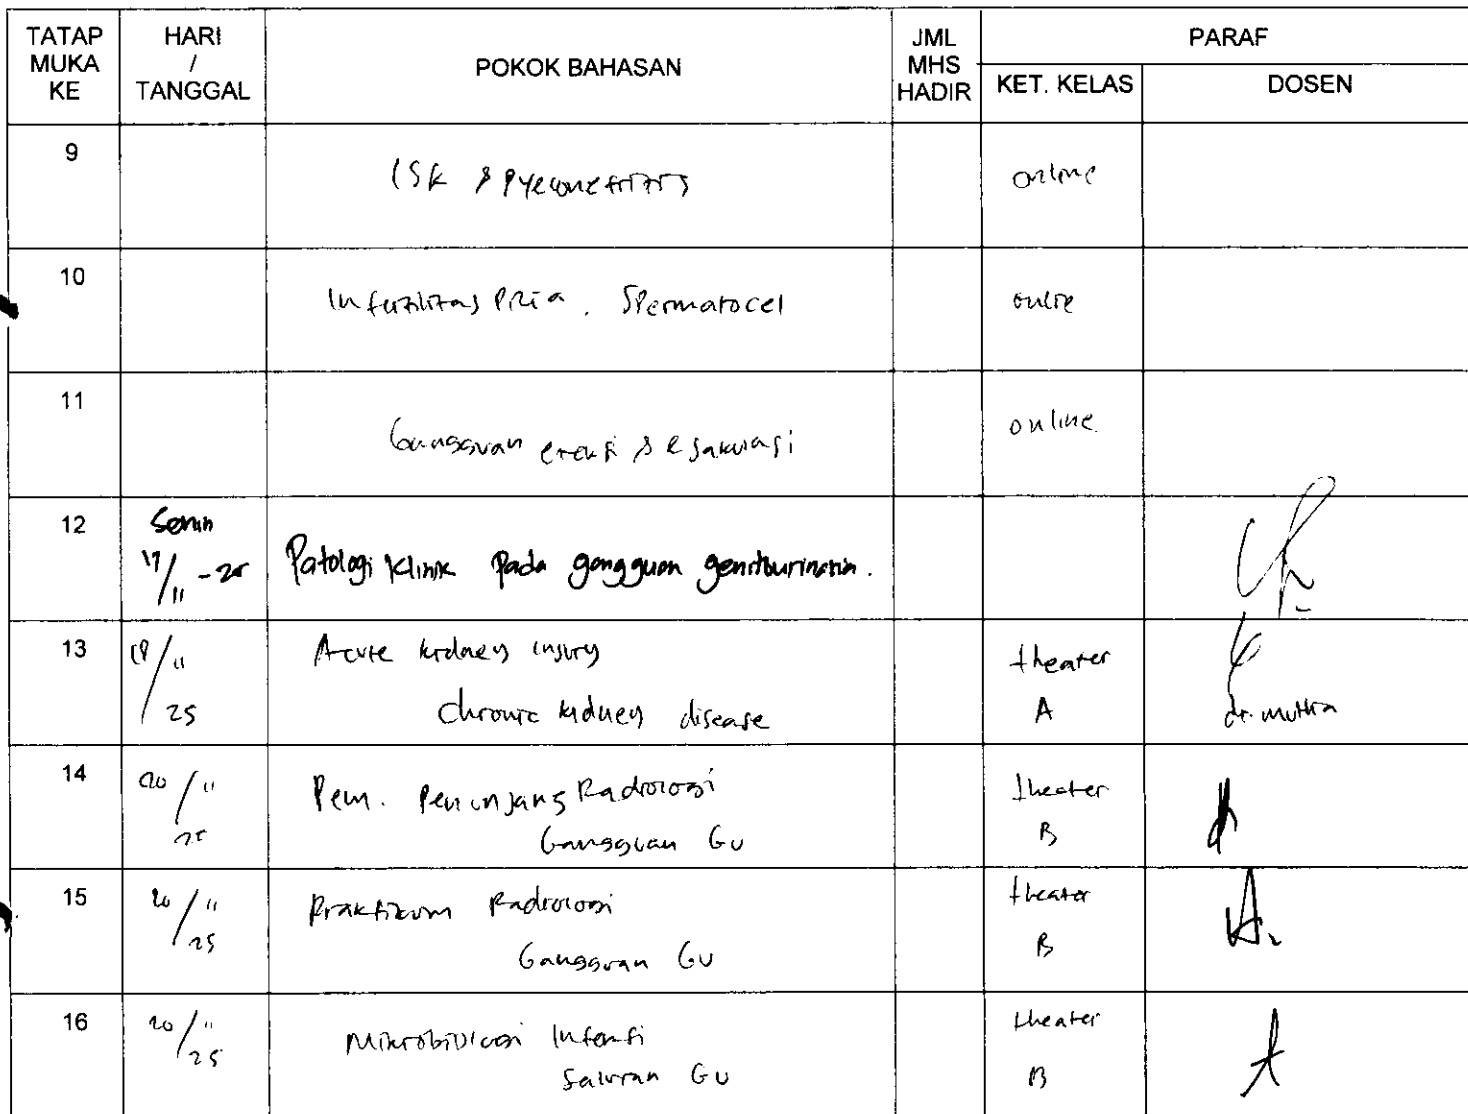 TATAP MUKA KE
HARI / TANGGAL
POKOK BAHASAN
JML MHS HADIR
PARAF
KET. KELAS
DOSEN
9
ISK & Pyelonefritis
online
10
Infertilitas Pria. Spermatocel
online
11
Gangguan ereksi & ejakulasi
online
12
Senin
17/11 - 25
Patologi Klinik pada gangguan genitourinaria.
13
18/11
25
Acute kidney injury
chronic kidney disease
theater
A
dr. muthia
14
20/11
25
Pem. Penunjang Radiologi
Gangguan GU
theater
B
15
20/11
25
Praktikum Radiologi
Gangguan GU
theater
B
16
20/11
25
Mikrobiologi Infeksi
Saluran GU
theater
B